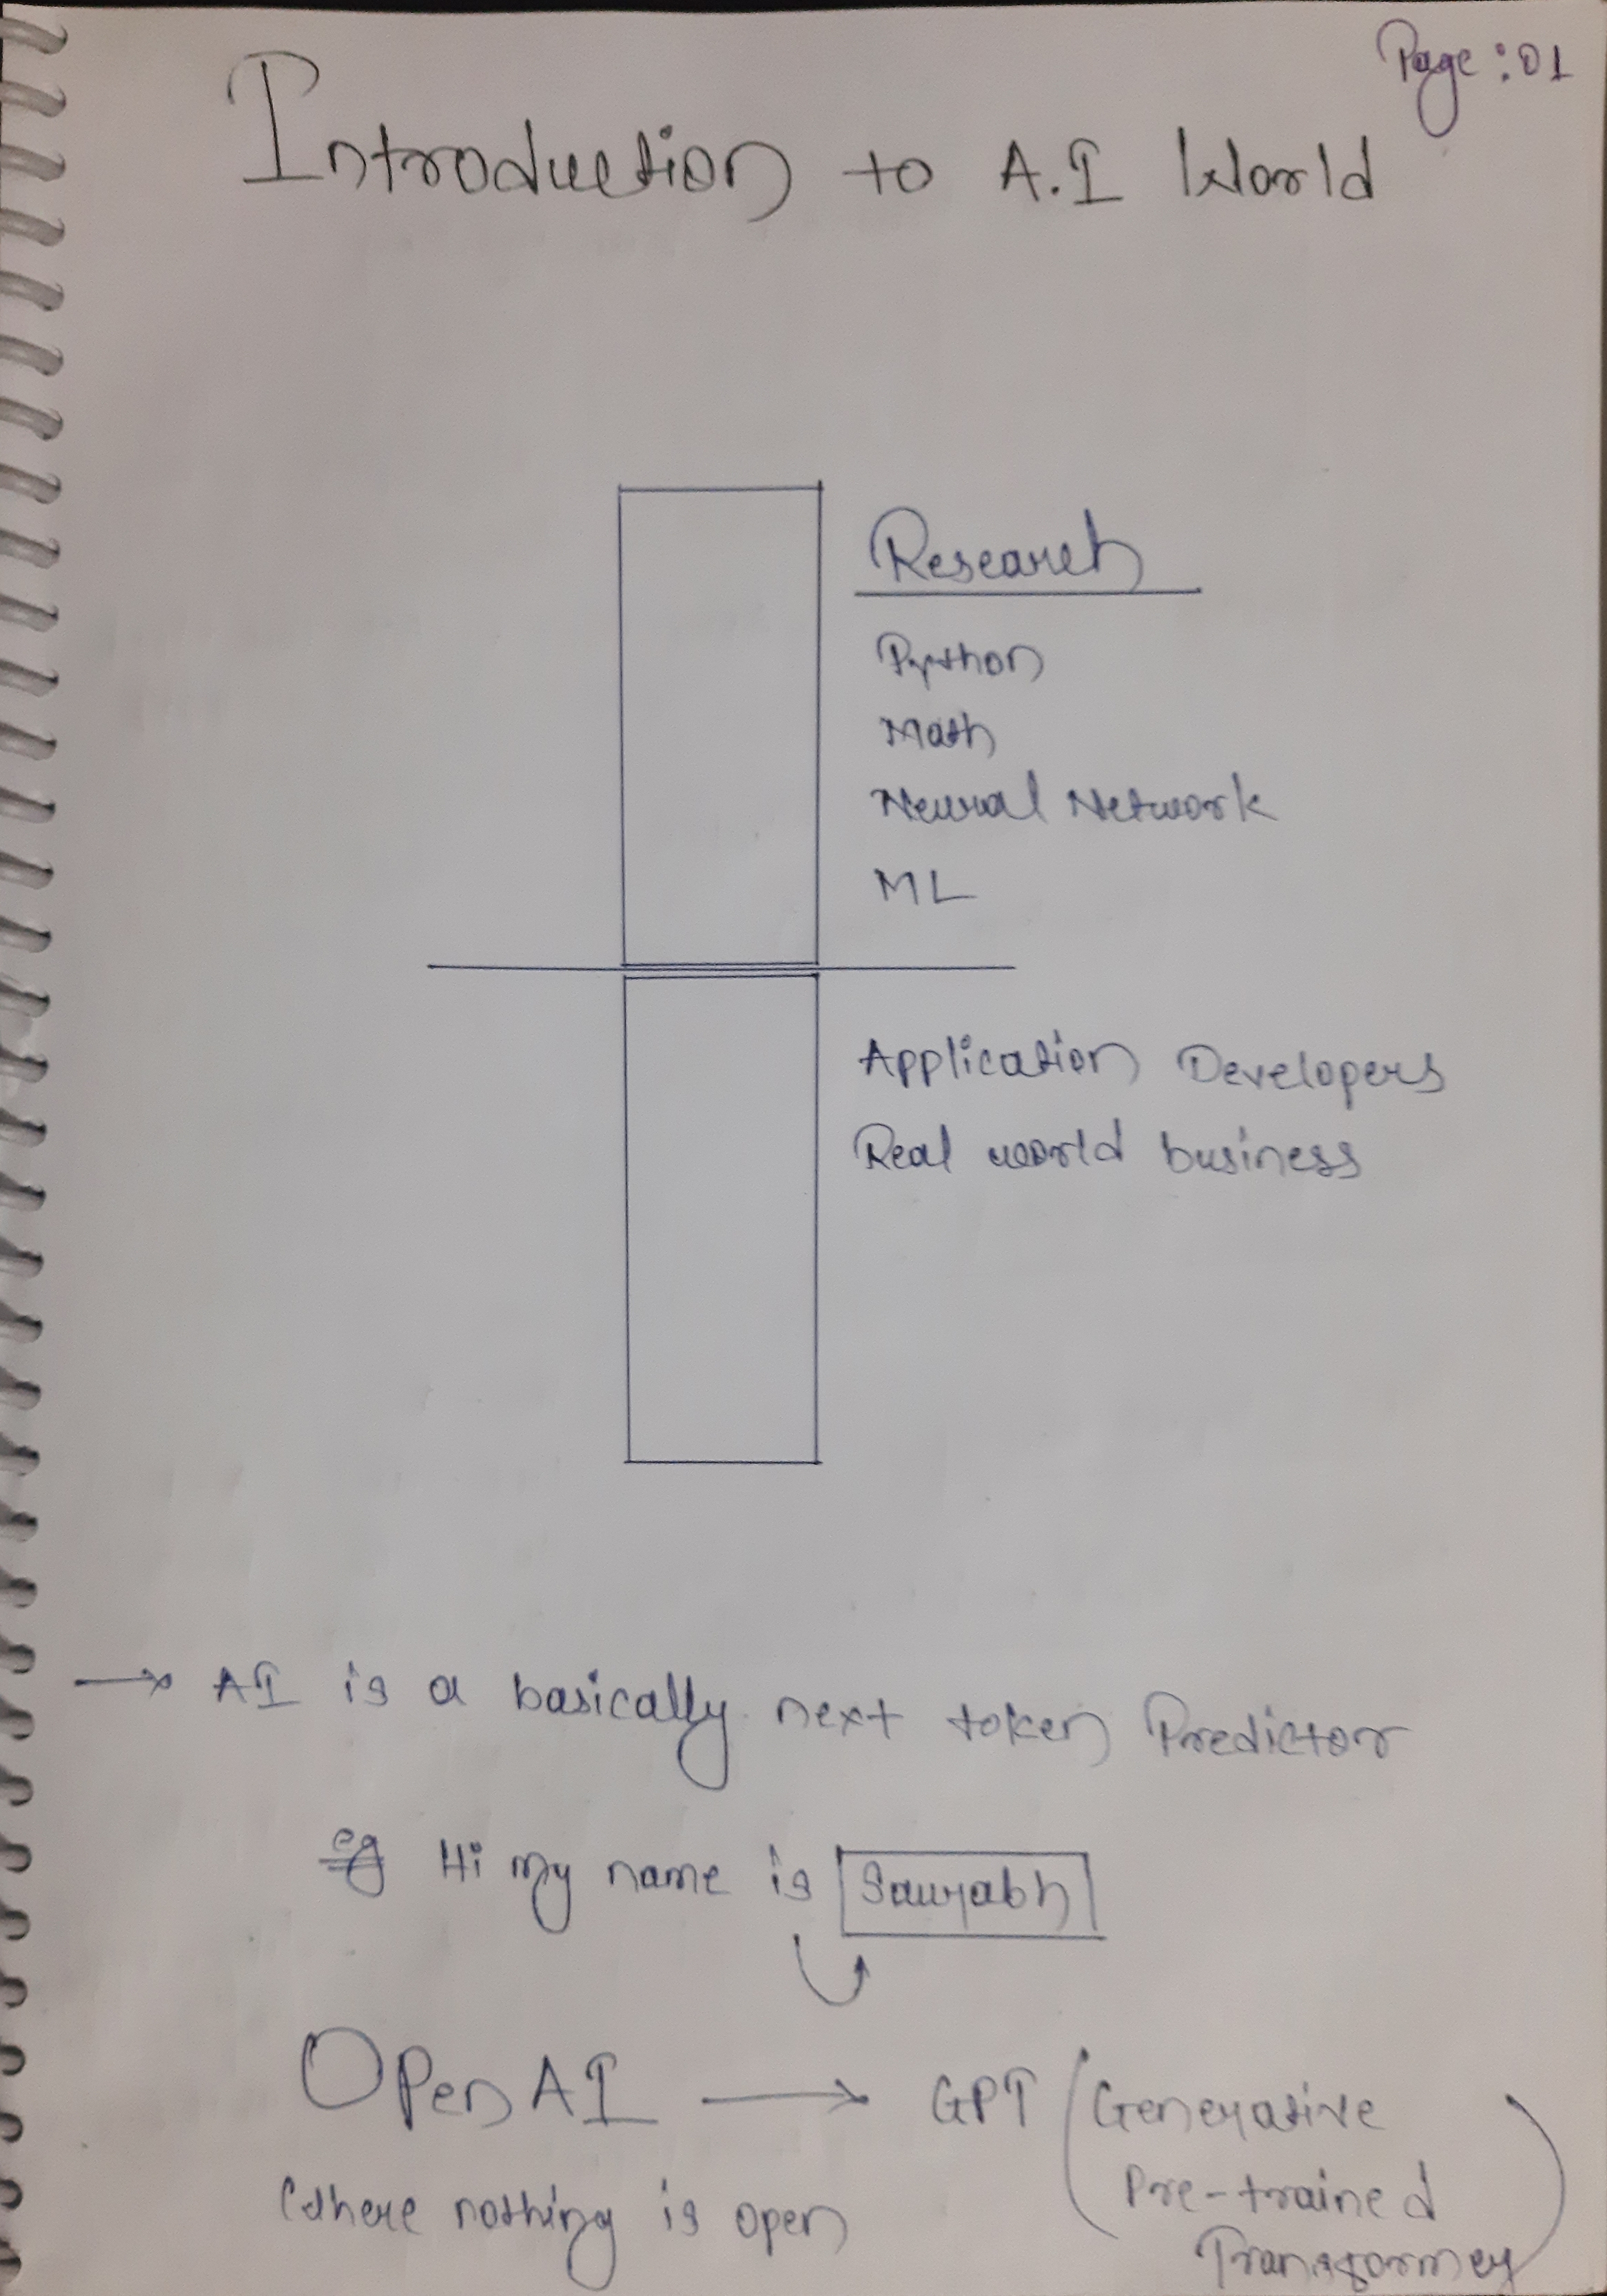 Page : 01
Introduction to A.I World
Research
Python
Math
Neural Network
ML
Application Developers
Real world business
→ AI is a basically next token Predictor
eg Hi my name is Saurabh
OPen AI → GPT (Generative
Pre-trained
Transformer)
Where nothing is open